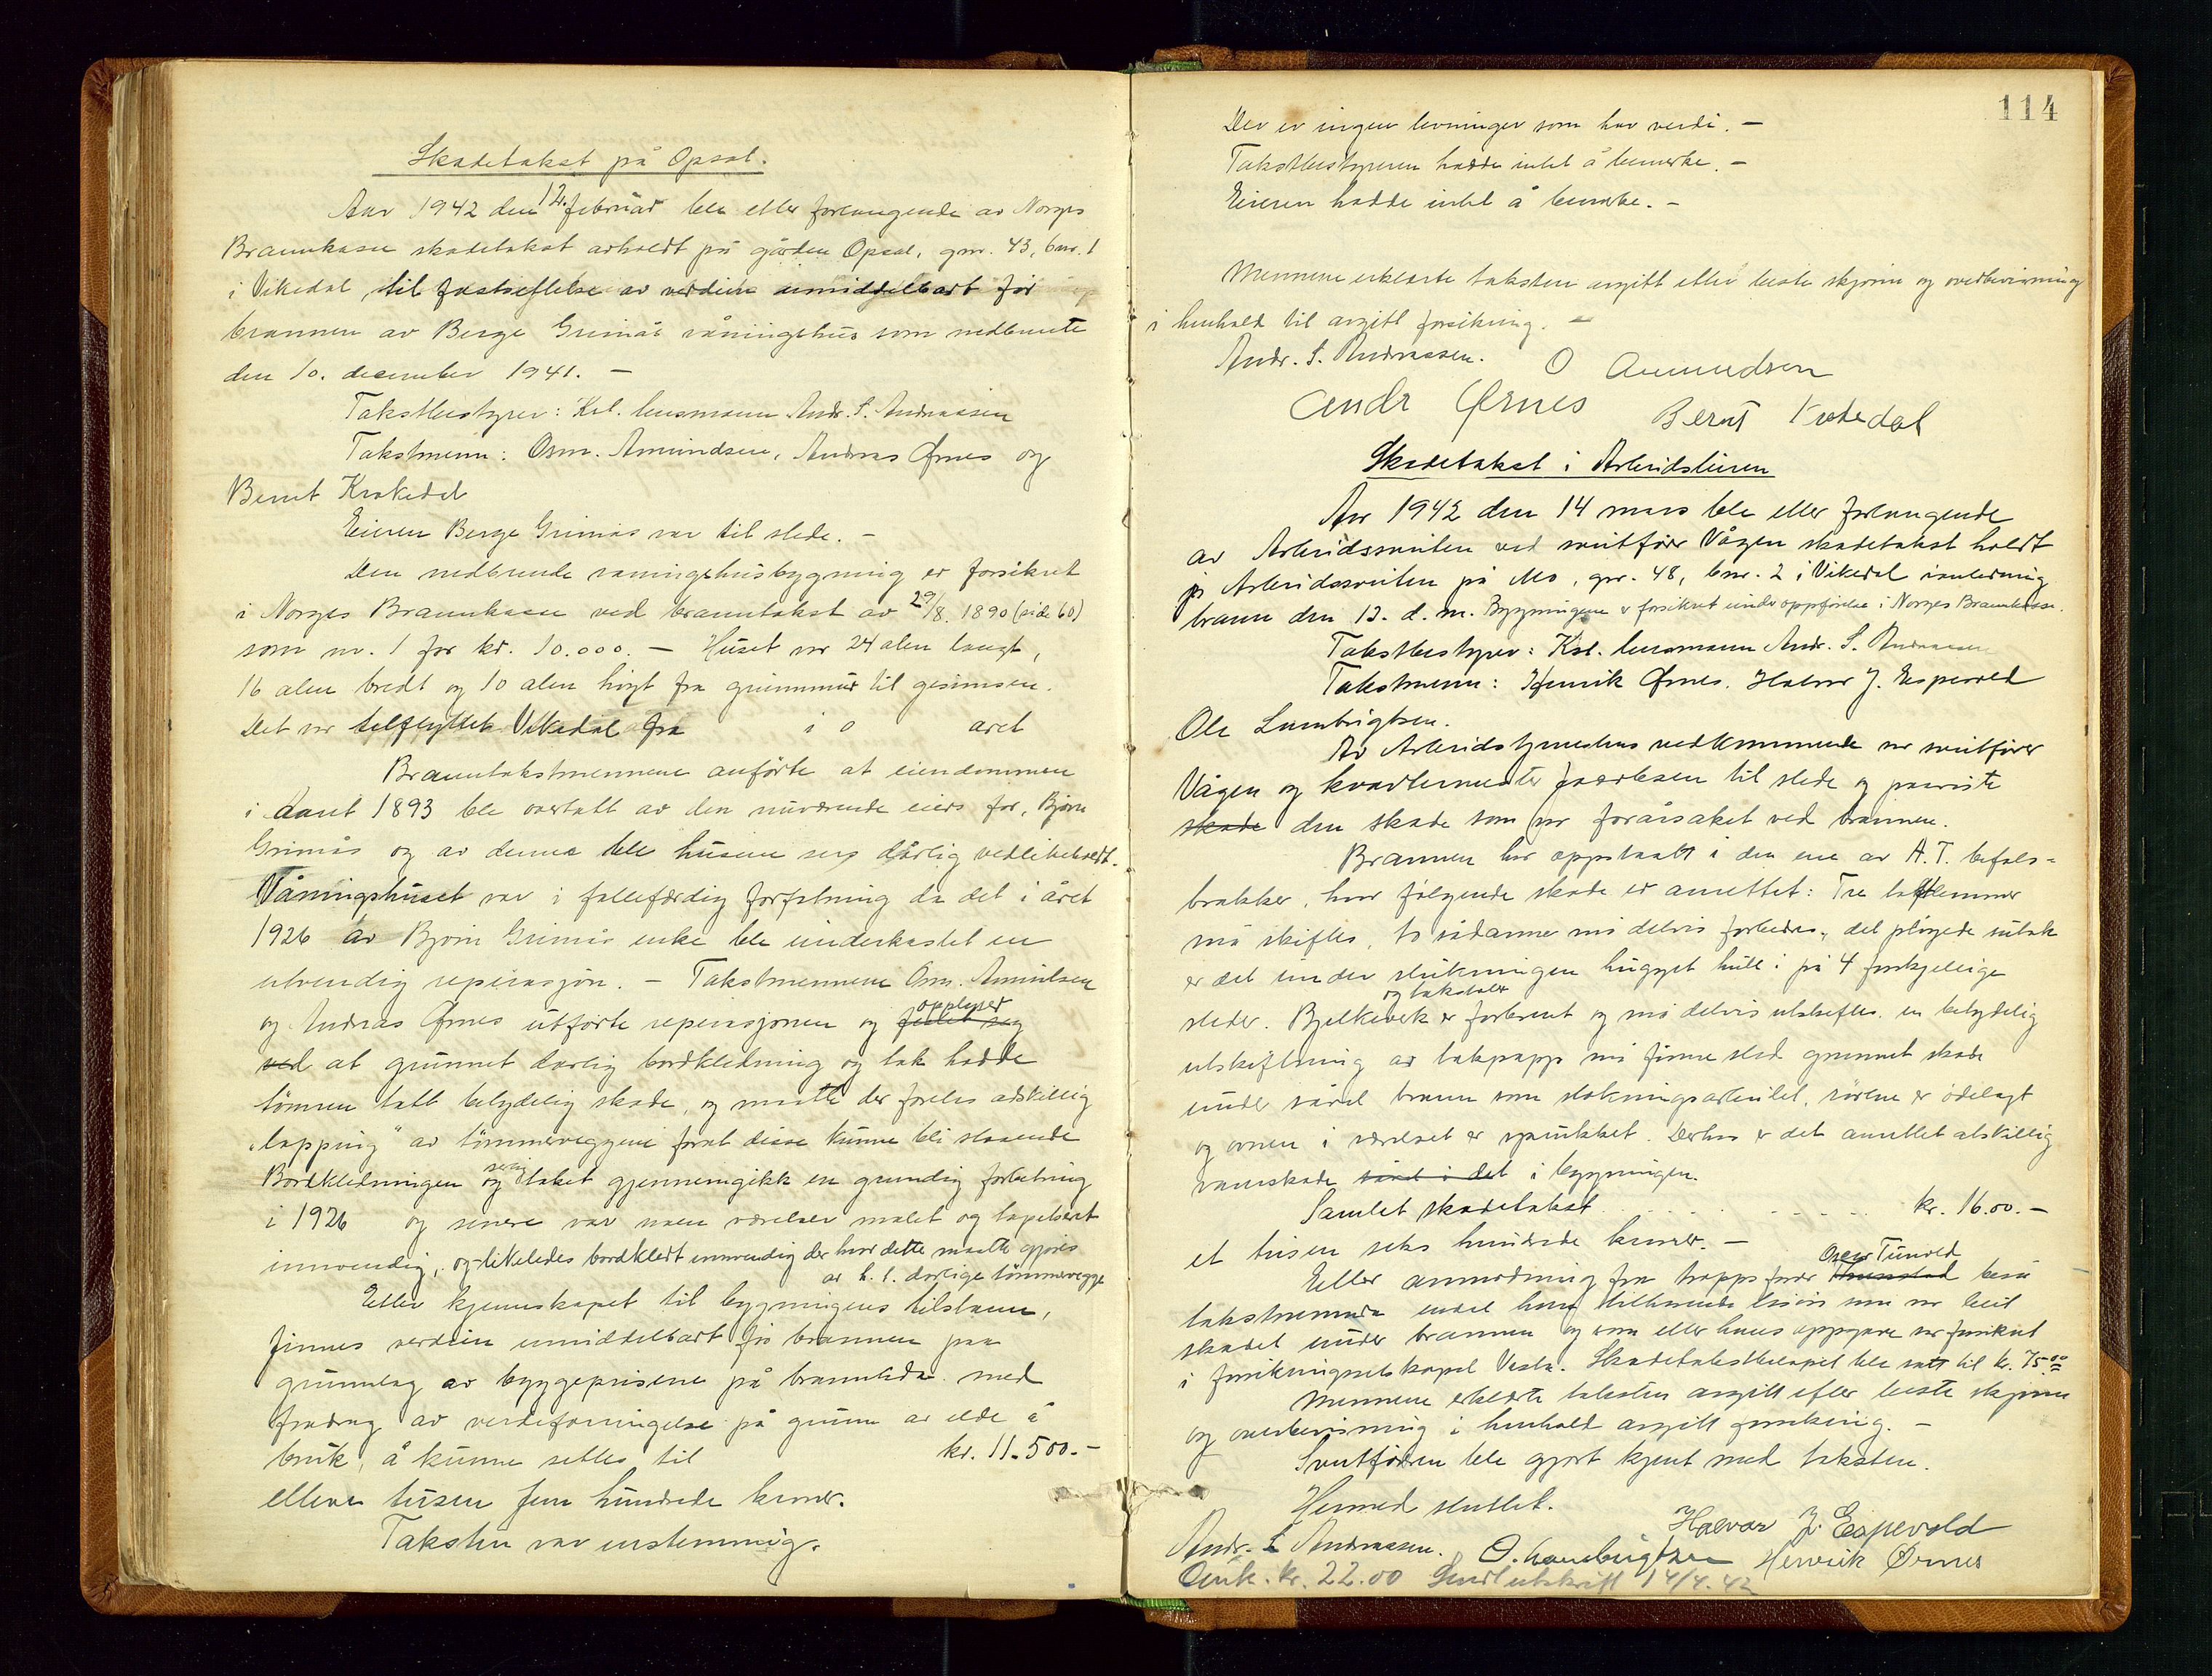 Skadetakst på Opsal.
Aar 1942 den 12. februar ble etter forlangende av Norges
Brannkasse skadetakst avholdt på gården Opsal, gnr. 43, bnr. 1
i Vikedal, til fastsettelse av verdien umiddelbart før
brannen av Berge Grimås våningshus som nedbrente
den 10. december 1941. —
Takstbestyrer: Kst. lensmann Andr. S. Andreassen
Takstmenn: Osm. Amundsen, Andreas Ørnes og
Bernt Krakedal
Eieren Berge Grimås var til stede. —
Den nedbrende våningshusbygning er forsikret
i Norges Brannkasse ved branntakst av 29/8. 1890 (side 60)
som nr. 1 for kr. 10.000. — Huset var 24 alen langt,
16 alen bredt og 10 alen høgt fra grunnmur til gesimsen.
Det var tilflyttet Vikedal fra i o aret
Branntakstmennene anførte at eiendommen
i aaret 1893 ble overtatt av den nuværende eiers far, Bjørn
Grimås og av denne ble husene sers dårlig vedlikeholdt.
Våningshuset var i falleferdig forfatning da det i året
1926 av Bjørn Grimås enke ble underkastet en
utvendig reperasjon. — Takstmennene Osm. Amundsen
og Andreas Ørnes utførte reperasjonen og opplyser
ved at grunnet dårlig bordkledning og tak hadde
tømren tatt betydelig skade, og maatte der foretas adskillig
"lapping" av tømmerveggene forat disse kunne bli staaende
Bordkledningen og taket gjennemgikk en grundig forbetring
i 1926 og senere var noen værelser malet og tapetsert
innvendig, og likeledes bordkledt innvendig der hvor dette maatte gjøres
av h. t. darlige tømmervegge
Etter kjennskapet til bygningens tilstann,
finnes verdien umiddelbart før brannen paa
grunnlag av byggeprisene på branntida med
fradrag av verdiforringelse på grunn av elde å
bruk, å kunne settes til kr. 11.500.-
elleve tusen fem hundrede kroner.
Taksten var enstemmig.
114
Der er ingen levninger som har verdi. —
Takstbestyreren hadde intet å bemerke. —
Eieren hadde intet å bemerke. -
Mennene erklærte taksten avgitt etter beste skjønn og overbevisning
i henhold til avgitt forsikring. —
Andr. S. Andreassen. O Amundsen
Andr Ørnes Bernt Krakedal
Skadetakst i Arbeidsleiren
Aar 1942 den 14 mars ble etter forlangende
av Arbeidssveiten ved sveitfører Vågen skadetakst holdt
på Arbeidssveiten på Mo, gnr. 48, bnr. 2 i Vikedal i anledning
brann den 13. d. m. Bygningene er forsikret under oppførelse i Norges Brannkasse.
Takstbestyrer: Kst. lensmann Andr. S. Andreassen
Takstmenn: Henrik Ørnes. Halvor J. Espevold
Ole Lambrigtsen.
Av Arbeidstjenestens vedkommende var sveitfører
Vågen og kvartermester til stede og paaviste
skade den skade som var forårsaket ved brannen.
Brannen har oppstaatt i den ene av A.T. befals-
brakker, hvor følgende skade er anrettet: Tre loftlemmer
må skiftes, to sådanne må delvis forbedres, det pløyede sutak
er det under slukningen hugget hull i på 4 forskjellige
og takstoler
steder. Bjelkeverk er forbrent og må delvis utskiftes, en betydelig
utskiftning av takpapp må finne sted grunnet skade
under såvel brann som slokningsarbeidet, rørene er ødelagt
og ovnen i værelset er sprukket. Derhos er det anrettet atskillig
vannskade såvel i det i bygningen.
Samlet skadetakst . . . . . . . kr. 1600.—
et tusen seks hundrede kroner. —
Oscar Tunold
Etter anmodning fra troppsfører beså
takstmennene endel ham tilhørende som var blit
skadet under brannen og som etter hans oppgave var forsikret
i forsikringsselskapet Vesta. Skadetakstbeløpet ble satt til kr. 75.00
Mennene erklærte taksten avgitt efter beste skjønn
og overbevisning i henhold avgitt forsikring. —
Sveitføreren ble gjort kjent med taksten.
Hermed sluttet.
Halvor J. Espevold
Andr. S. Andreassen. O. Lambrigtsen Henrik Ørnes
Omk. kr. 22.00 Sendt utskrift 14/4. 42